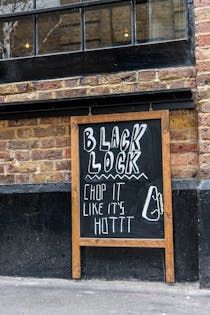 BLACK
LOCK
CHOP IT
LIKE IT'S
HOTTT